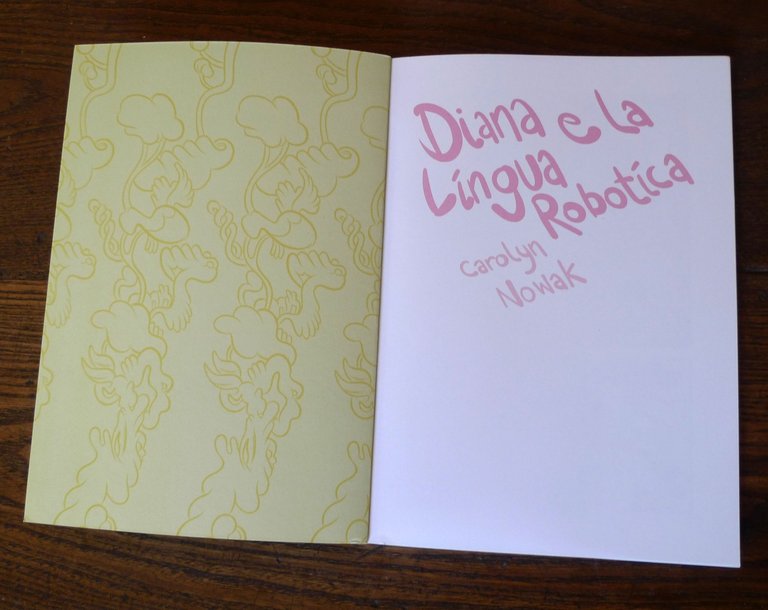 Diana e la
Língua
Robotica
Carolyn
Nowak